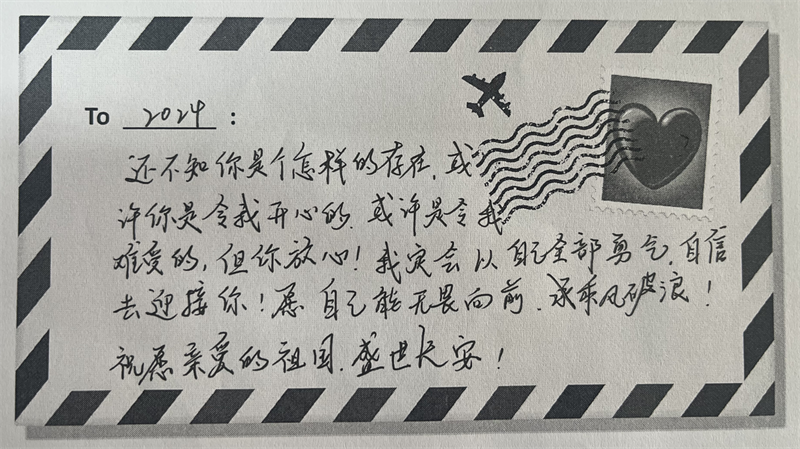 To 2024 :
还不知你是个怎样的存在,或
许你是令我开心的,或许是令我
难受的,但你放心!我定会以自己全部勇气,自信
去迎接你!愿自己能无畏向前,乘风破浪!
祝愿亲爱的祖国,盛世长安!